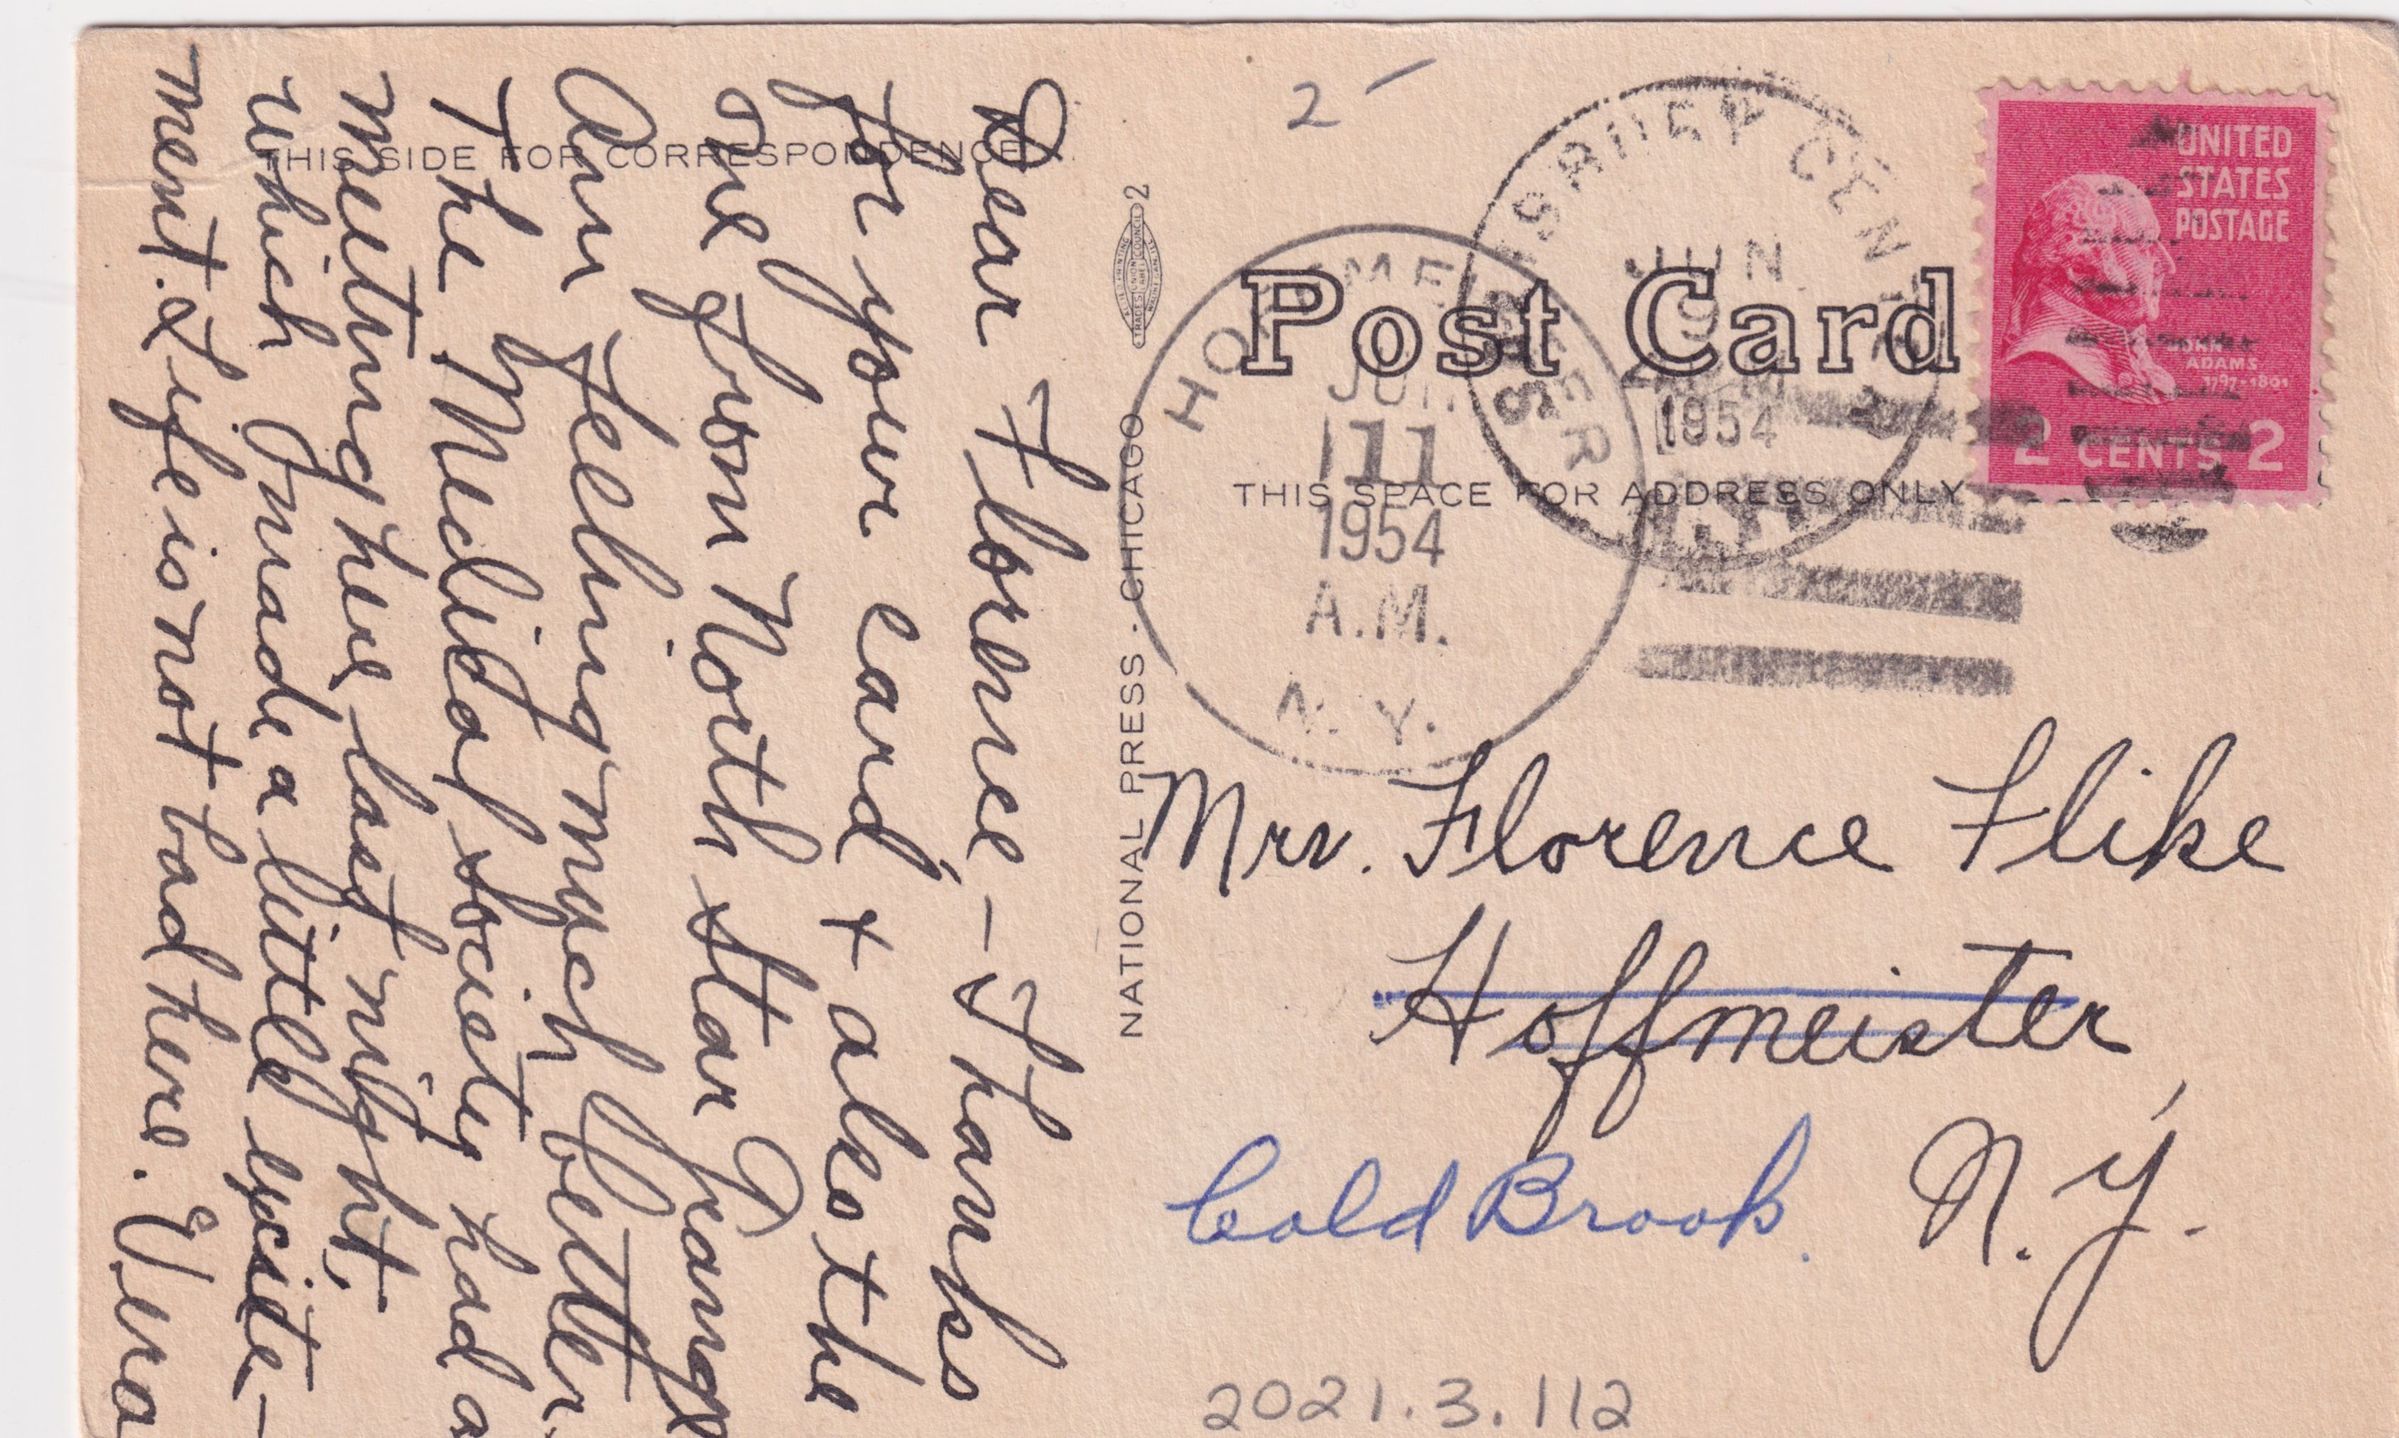 THIS SIDE FOR CORRESPONDENCE
Dear Florence - Thanks
for your card & also the
one from North Star Grange
Am feeling much better.
The Medical Society had a
meeting here last night,
which made a little excite-
ment. Life is not bad here. Vera
2
NATIONAL PRESS · CHICAGO
2 -
Post Card
THIS SPACE FOR ADDRESS ONLY
SALISBURY CENTER
JUN
9
1954
N.Y.
HOFFMEISTER
JUN
11
1954
A.M.
N.Y.
UNITED
STATES
POSTAGE
JOHN
ADAMS
1797-1801
2 CENTS 2
Mrs. Florence Flike
Hoffmeister,
Cold Brook. N.Y.
2021.3.112